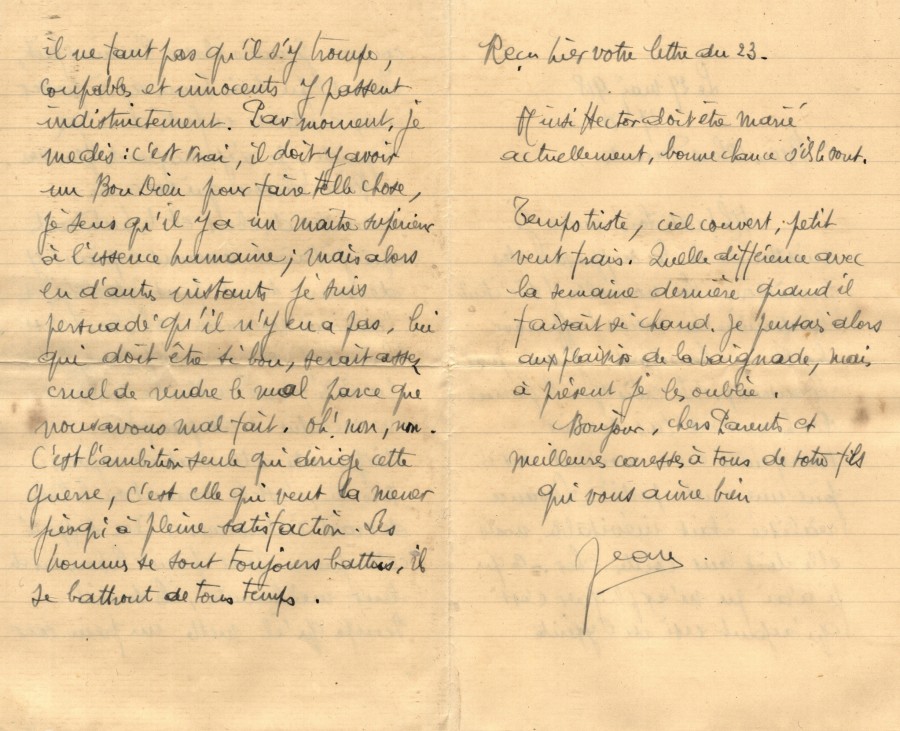 il ne faut pas qu'il s'y trompe,
coupables et innocents y passent
indistinctement. Par moment, je
me dis : c'est vrai, il doit y avoir
un Bon Dieu pour faire telle chose,
je sens qu'il y a un maître supérieur
à l'essence humaine ; mais alors
en d'autres instants je suis
persuadé qu'il n'y en a pas, lui
qui doit être si bon, serait assez
cruel de rendre le mal parce que
nous avons mal fait. Oh! non, non.
C'est l'ambition seule qui dirige cette
guerre, c'est elle qui veut la mener
jusqu'à pleine satisfaction. Les
hommes se sont toujours battus, il
se battront de tous temps.
Reçu hier votre lettre du 23.
Ainsi Hector doit être marié
actuellement, bonne chance s'ils le sont.
Temps triste, ciel couvert, petit
vent frais. Quelle différence avec
la semaine dernière quand il
faisait si chaud. Je pensais alors
aux plaisirs de la baignade, mais
à présent je les oublie.
Bonjour, chers Parents et
meilleures caresses à tous de votre fils
qui vous aime bien
Jean.